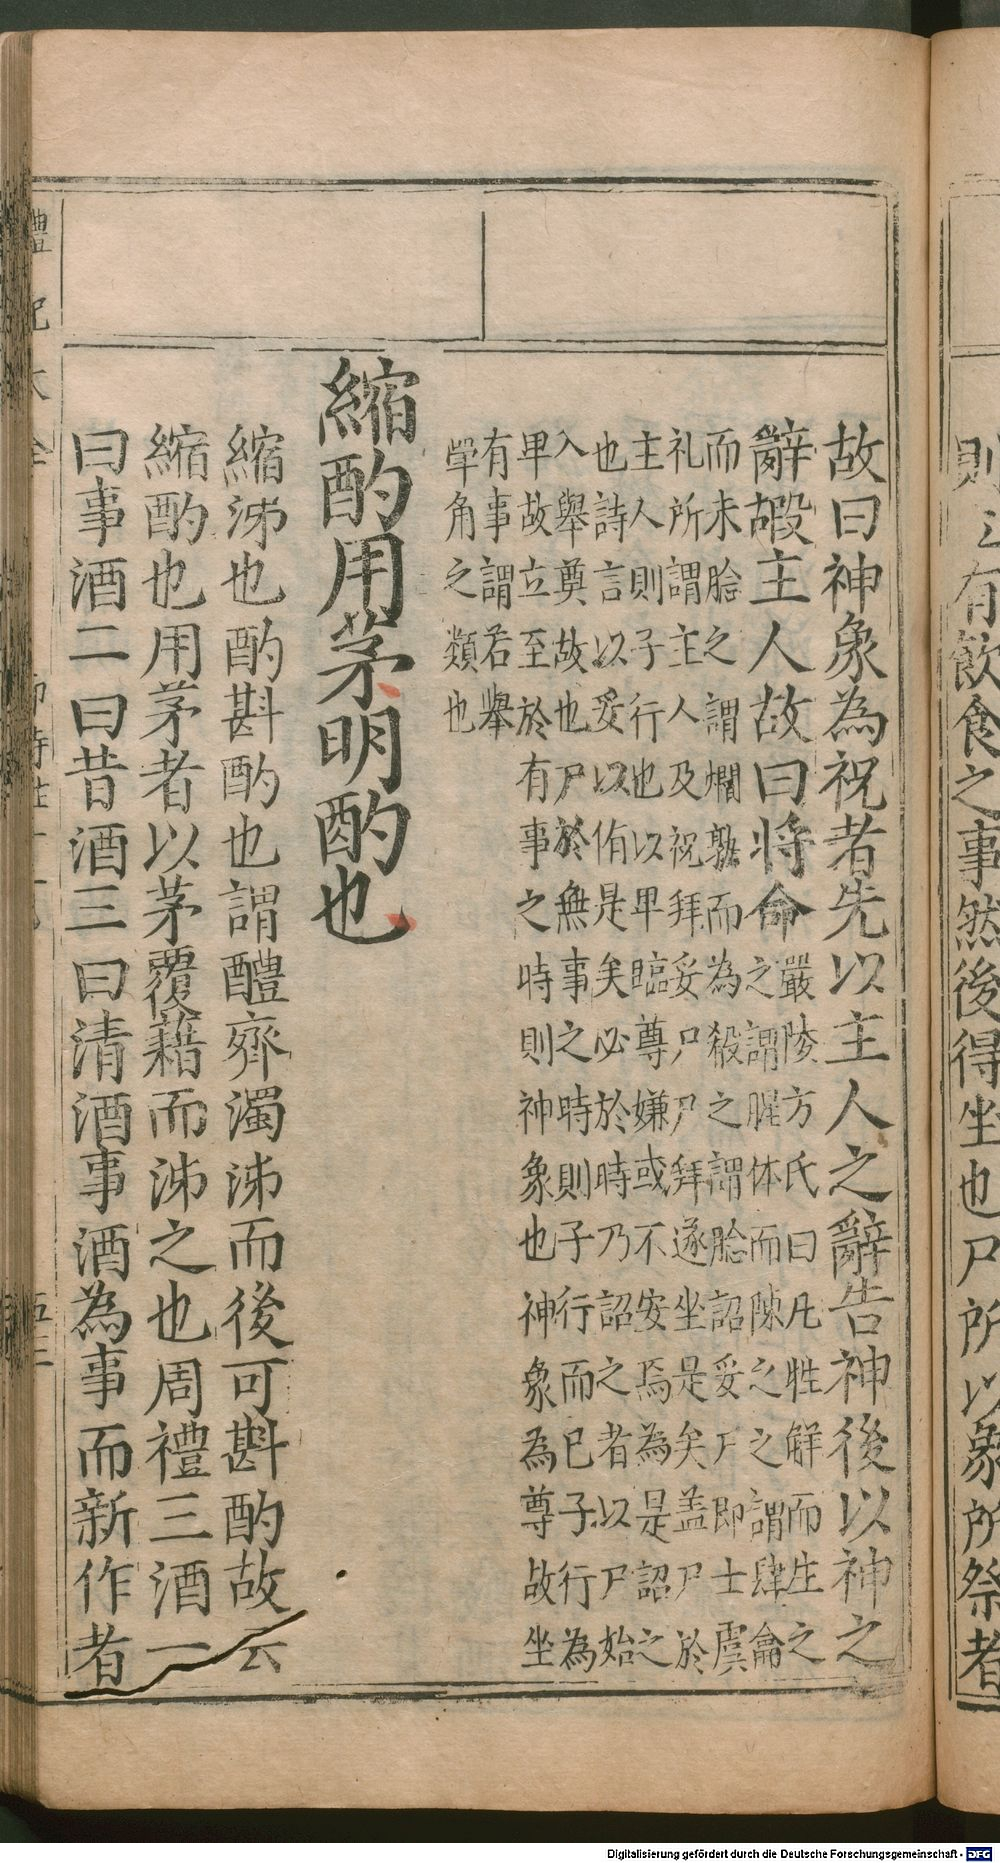 有飲食之事然後得坐也尸所以象所祭者
故曰神象為祝者先以主人之辭告神後以神之
辭嘏主人故曰將命
嚴陵方氏曰凡牲解而生之
之謂腥体而陳之之謂肆龠
而未脍之謂爓熟而為殽之謂脍詔妥尸即士虞
礼所謂主人及祝拜妥尸尸拜遂坐是矣盖尸於
主人則子行也以卑臨尊嫌或不安焉為是詔之
也詩言以妥以侑是矣必於時乃詔之者以尸始
入舉奠故也尸於無事之時則子行而已子行為
卑故立至於有事之時則神象也神象為尊故坐
有事謂若舉
斝角之類也
縮酌用茅明酌也
縮泲也酌斟酌也謂醴齊濁泲而後可斟酌故云
縮酌也用茅者以茅覆藉而泲之也周禮三酒一
曰事酒二曰昔酒三曰清酒事酒為事而新作者
禮記大全
Digitalisierung gefördert durch die Deutsche Forschungsgemeinschaft - DFG